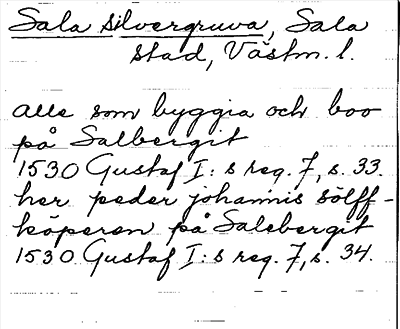 Sala silvergruva, Sala
stad, Västm. l.
alle som byggia och boo
på Salbergit
1530 Gustaf I:s reg. 7, s. 33.
her peder johannis sölff-
köperen på Salebergit
1530 Gustaf I:s reg. 7, s. 34.